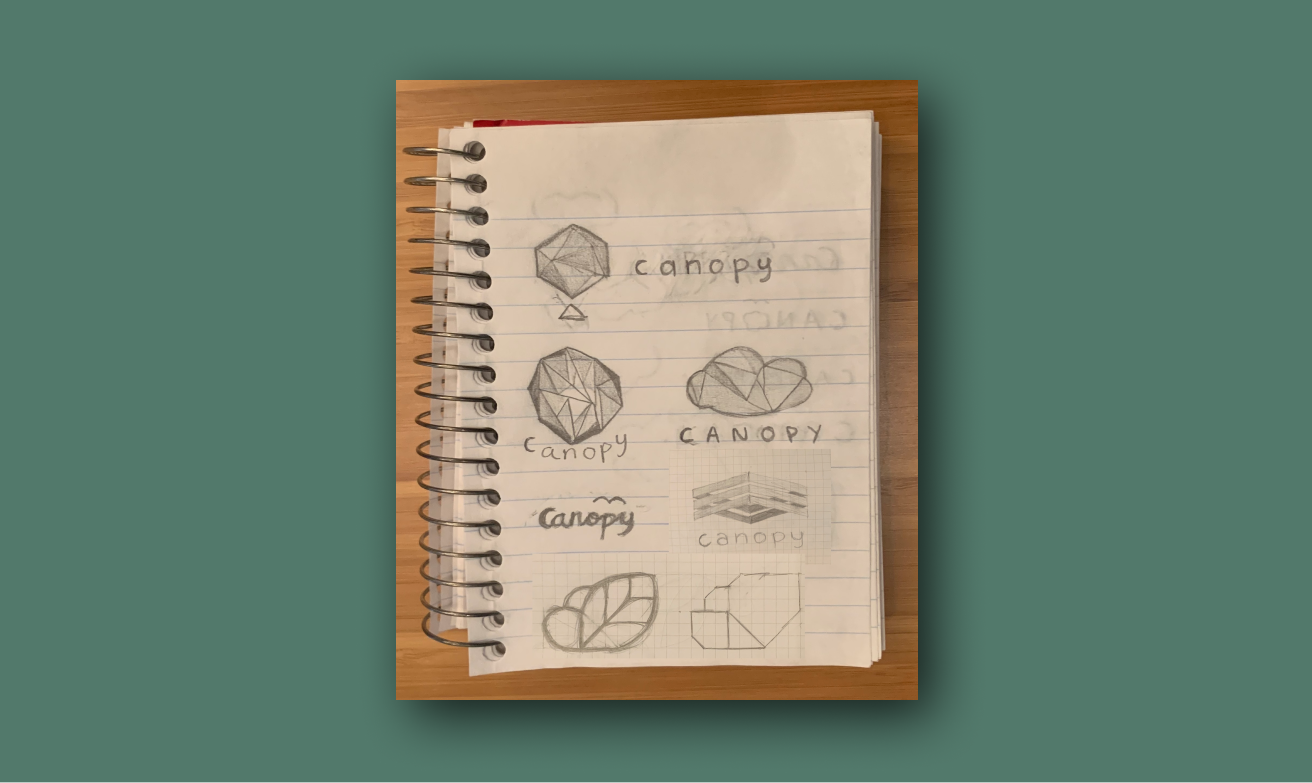 canopy
canopy
CANOPY
Canopy
canopy